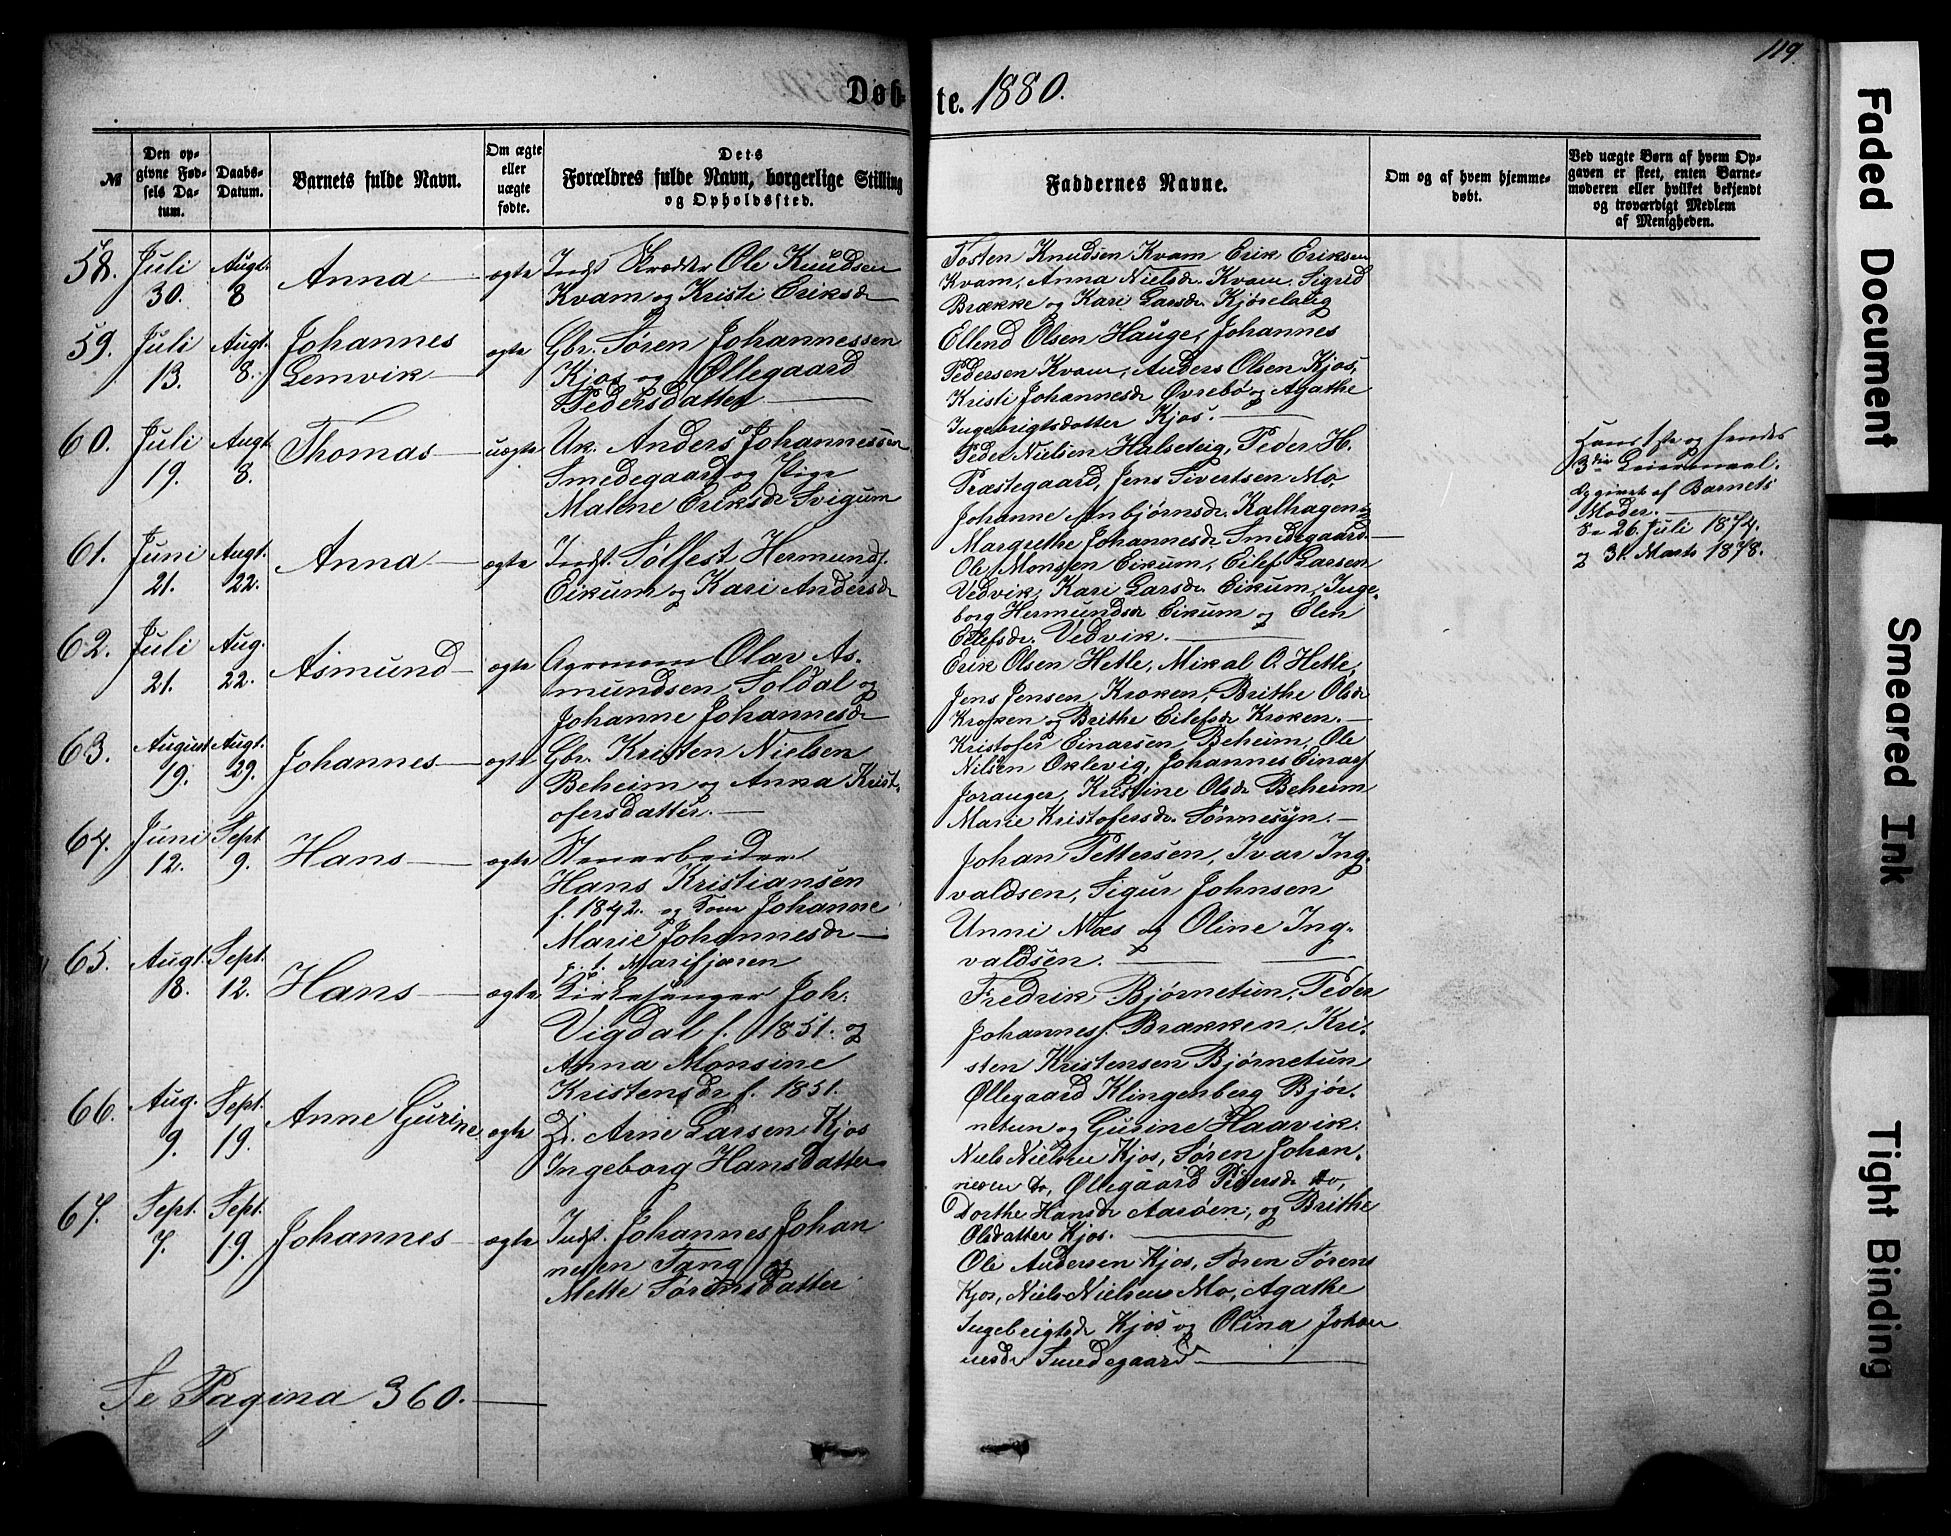 119.
Døbte. 1880.
№
Den opgivne Fødsels Datum.
Daabs-Datum.
Barnets fulde Navn.
Om ægte eller uægte fødte.
Dets Forældres fulde Navn, borgerlige Stilling og Opholdssted.
Faddernes Navne.
Om og af hvem hjemmedøbt.
Ved uægte Børn af hvem Opgaven er skeet, enten Barnemoderen eller hvilket bekjendt og troværdigt Medlem af Menigheden.
58. Juli 30. Augt. 8 Anna ægte
Indst Skrædder Ole Knudsen
Kvam og Kristi Eriksdr
Tosten Knudsen Kvam Erik Eriksen
Kvam, Anna Nielsdr. Kvam, Sigrid
Brække og Kari Larsdr. Kjørelvig
59. Juli 13. Augt. 8. Johannes Lemvik ægte
Gbr. Søren Johannessen
Kjos og Øllegaard
Pedersdatter
Ellend Olsen Hauge, Johannes
Pedersen Kvam, Anders Olsen Kjos,
Kristi Johannesdr Øvrebø og Agathe
Ingebrigtsdotter Kjos.
60. Juli 19. Augt 8. Thomas uægte
Uk. Anders Johannessen
Smedegaard og Pige
Malene Eriksdr Svigum
Peder Nielsen Halsetvig, Peder H.
Præstegaard, Jens Sivertsen Mo,
Johanne Anbjørnsdr. Kalhagen
Margrethe Johannesdr. Smedegaard
Hans 1ste og hendes
3die Leiermaal.
Opgivet af Barnets
Moder.
26. Juli 1874.
31. Marts 1878.
61. Juni 21. Augt. 22. Anna ægte
Indst. Sølfest Hermunds.
Eikum og Kari Andersdr
Ole Monssen Eikum, Eilef Larsen
Vedvik, Kari Larsdr. Eikum, Inge-
borg Hermundsdr Eikum og Elen
Eilefsdr. Vedvik.
62. Juli 21. Aug. 22. Asmund ægte
Agronom Olav As-
mundsen Soldal og
Johanne Johannesdr
Erik Olsen Hetle, Mikal O. Hetle,
Jens Jensen Kroken, Brithe Olsdr
Kroken og Brithe Eilefsdr Kroken.
63. August 19. Augt. 29. Johannes ægte
Gbr. Kristen Nielsen
Beheim og Anna Krist-
ofersdatter.
Kristofer Einarsen Beheim, Ole
Nilsen Oklevig, Johannes Einars
Joranger, Kristine Olsdr Beheim
Marie Kristofersdr. Sønnesyn.
64. Juni 12. Sept 9. Hans ægte
Stenarbeider
Hans Kristiansen
f. 1842. og Kone Johanne
Marie Johannesdr
p. t. Marifjæren
Johan Pettersen, Ivar Ing-
valdsen, Sigur Johnsen
Unni Næs og Oline Ing-
valdsen.
65. Augt 18. Sept. 12. Hans ægte
Kirkesanger Joh.
Vigdal f. 1851. og
Anna Monsine
Kristensdr f. 1851.
Fredrik Bjørnetun, Peder
Johannes. Brækken, Kri-
sten Kristensen Bjørnetun
Øllegaard Klingenberg Bjør-
netun og Gurine Haavik.
66. Aug. 9. Sept. 19. Anne Gurine ægte
Arne Larsen Kjos
Ingeborg Hansdatter
Niels Nielsen Kjos, Søren Johan-
nesen do, Øllegaard Pedersdr do,
Dorthe Hansdr Aarøen, og Brithe
Olsdatter Kjos.
67. Sept. 7. Sept. 19. Johannes ægte
Indst. Johannes Johan
nessen Tang og
Mette Sørensdatter
Ole Andersen Kjos, Søren Sørens
Kjos, Niels Nielsen Mo, Agathe
Ingebrigtsdr Kjos og Olina Johan
nesdr Smedegaard
Se Pagina 360.
Faded Document
Smeared Ink
Tight Binding